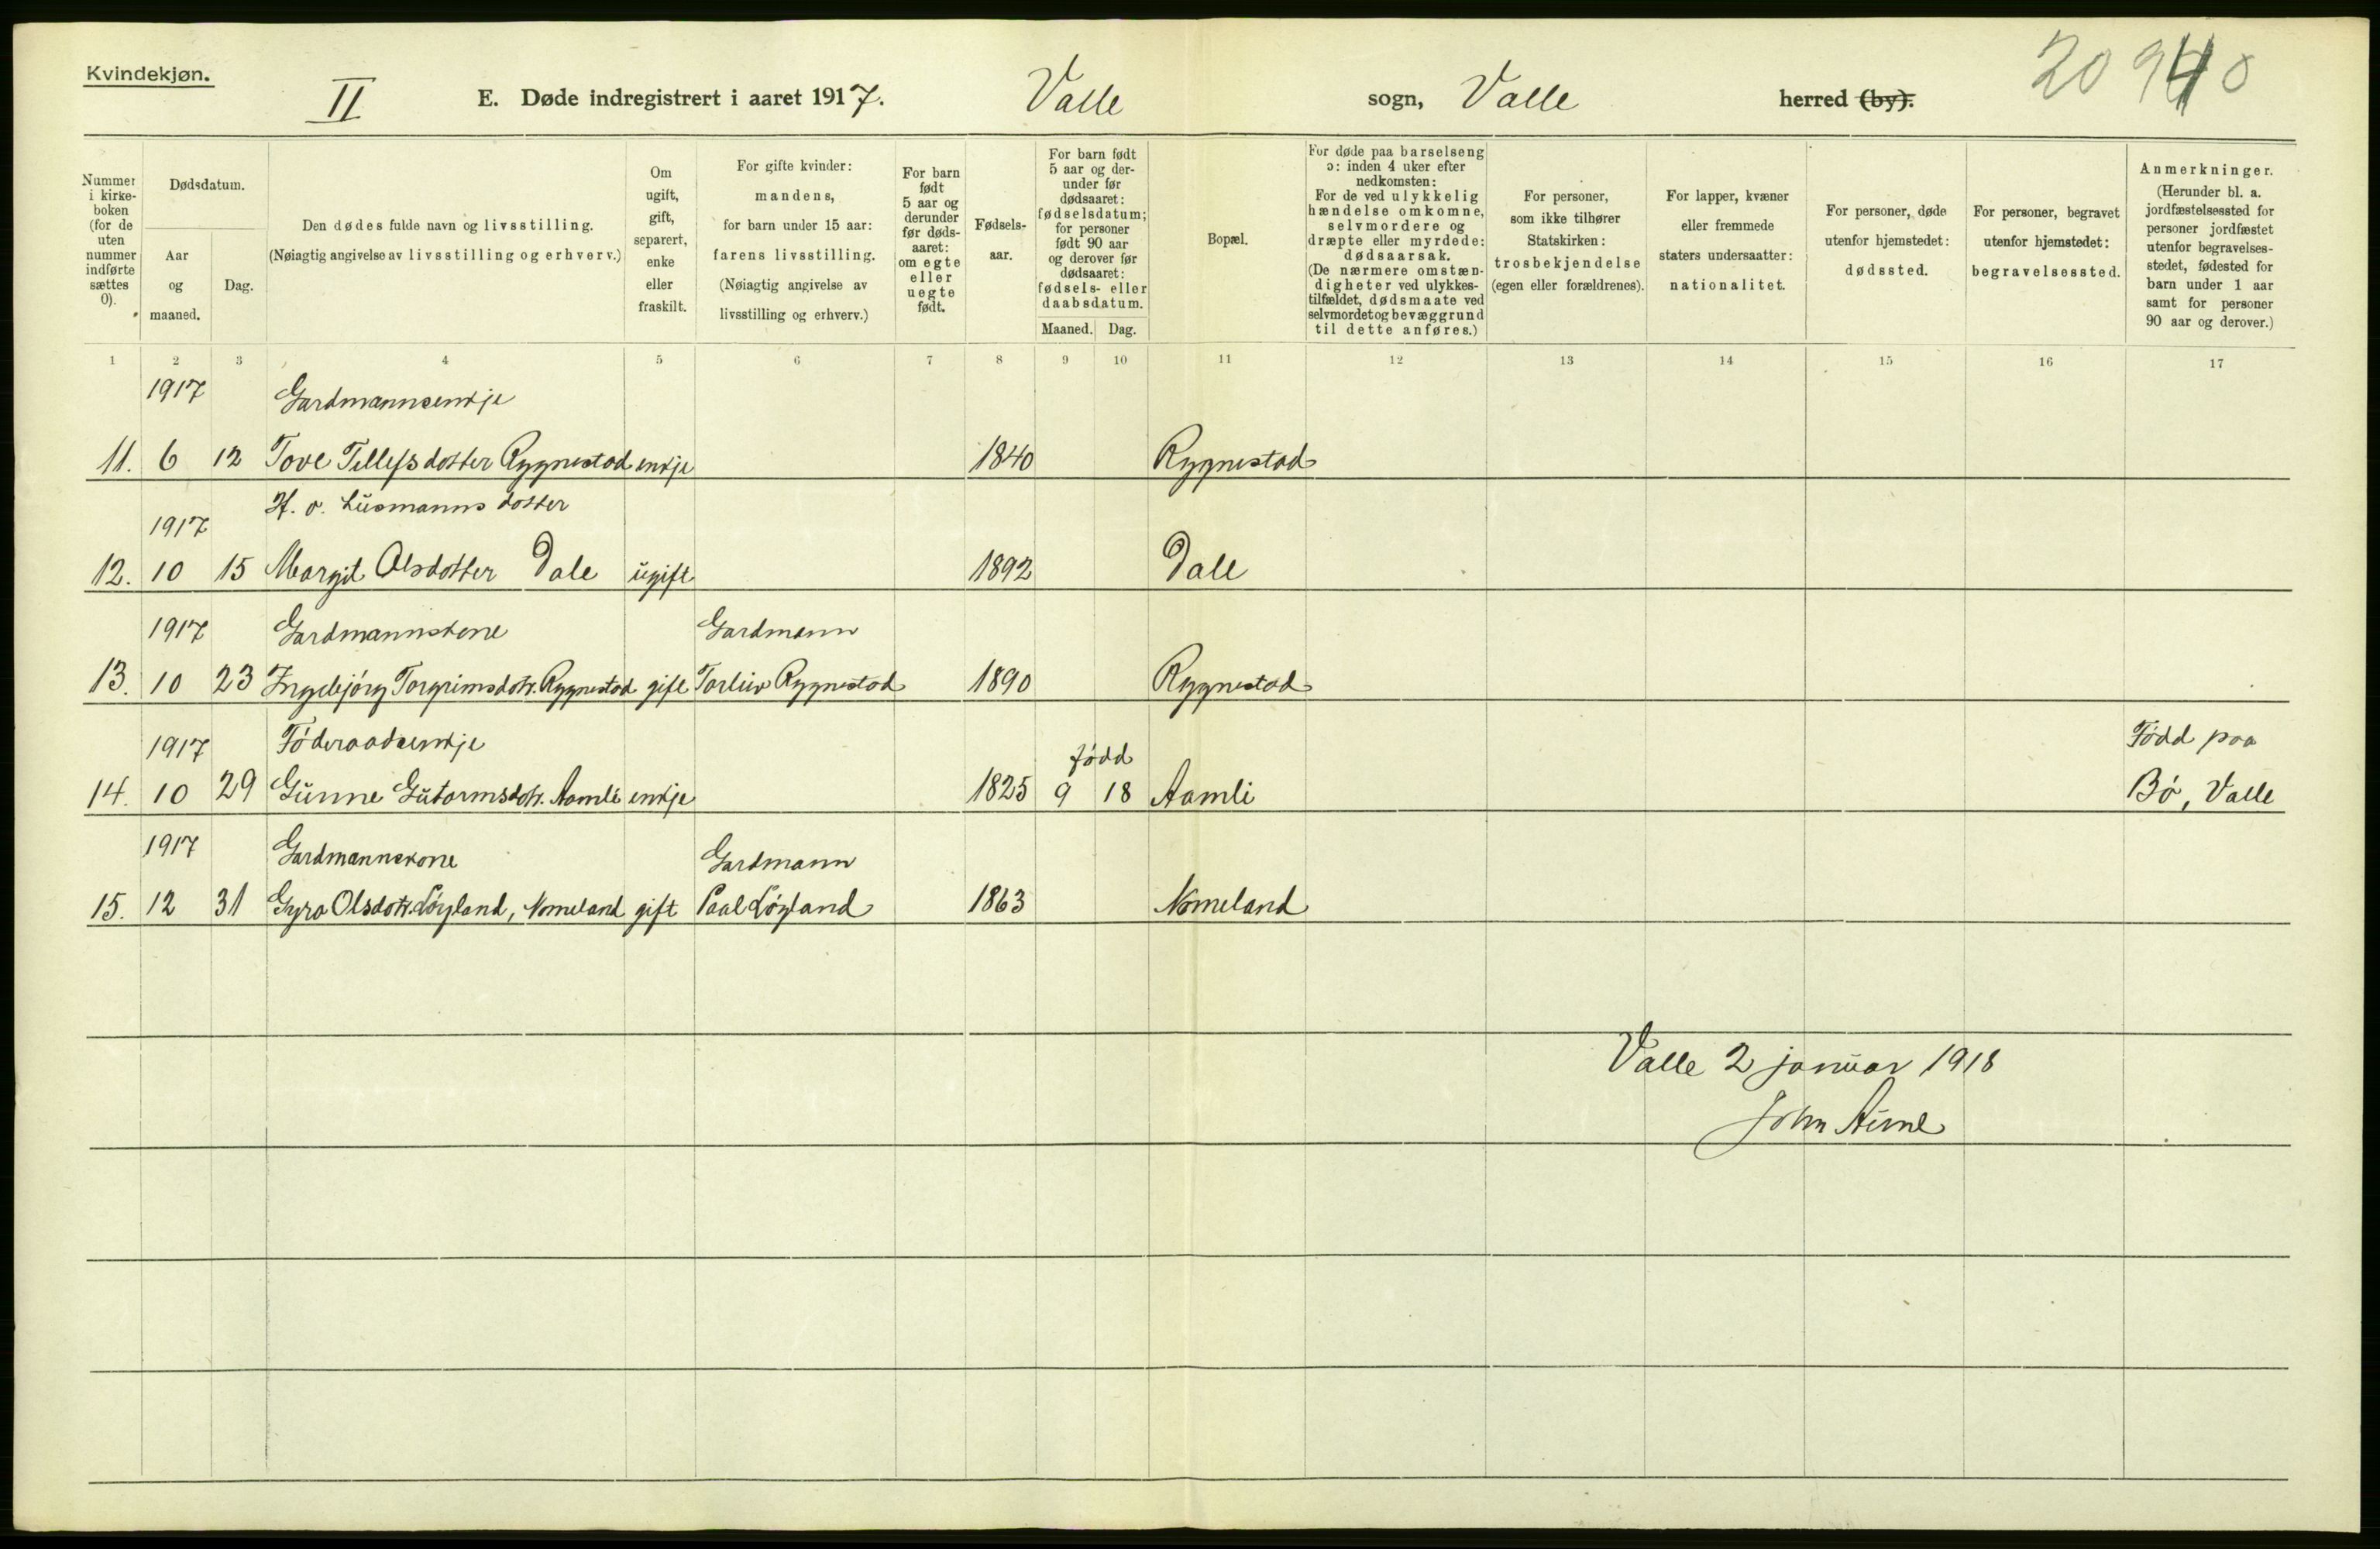 Kvindekjøn.
II
E. Døde indregistrert i aaret 1917. Valle sogn, Valle herred (by).
Nummer i kirkeboken (for de uten nummer indførte sættes 0).
Dødsdatum.
Aar og maaned.
Dag.
Den dødes fulde navn og livsstilling.
(Nøiagtig angivelse av livsstilling og erhverv.)
Om ugift, gift, separert, enke eller fraskilt.
For gifte kvinder: mandens, for barn under 15 aar: farens livsstilling. (Nøiagtig angivelse av livsstilling og erhverv.)
For barn født 5 aar og derunder før dødsaaret: om egte eller uegte født.
Fødselsaar.
For barn født 5 aar og derunder før dødsaaret: fødselsdatum; for personer født 90 aar og derover før dødsaaret: fødsels- eller daabsdatum.
Maaned. Dag.
Bopæl.
For døde paa barselseng ɔ: inden 4 uker efter nedkomsten: For de ved ulykkelig hændelse omkomne, selvmordere og dræpte eller myrdede: dødsaarsak. (De nærmere omstændigheter ved ulykkestilfældet, dødsmaate ved selvmordet og bevæggrund til dette anføres.)
For personer, som ikke tilhører Statskirken: trosbekjendelse (egen eller forældrenes).
For lapper, kvæner eller fremmede staters undersaatter: nationalitet.
For personer, døde utenfor hjemstedet: dødssted.
For personer, begravet utenfor hjemstedet: begravelsessted.
Anmerkninger. (Herunder bl. a. jordfæstelsessted for personer jordfæstet utenfor begravelsesstedet, fødested for barn under 1 aar samt for personer 90 aar og derover.)
1 2 3 4 5 6 7 8 9 10 11 12 13 14 15 16 17
1917 Gardmannsenkje
11. 6 12 Tove Tellefsdotter Rygnestad enkje 1840 Rygnestad
H. o. Husmanns dotter
1917
12. 10 15 Margit Olsdotter Dale ugift 1892 Dale
1917 Gardmannskone Gardmann
13. 10 23 Ingebjörg Torgrimsdotr. Rygnestad gift Torleiv Rygnestad 1890 Rygnestad
1917 Föderaadsenkje född Född paa
14. 10 29 Gunne Gutormsdotr. Aamli enkje 1825 9 18 Aamli Bö, Valle
1917 Gardmannskone Gardmann
15. 12 31 Gyro Olsdotr. Löyland, Nomeland gift Paal Löyland 1863 Nomeland
Valle 2 januar 1918